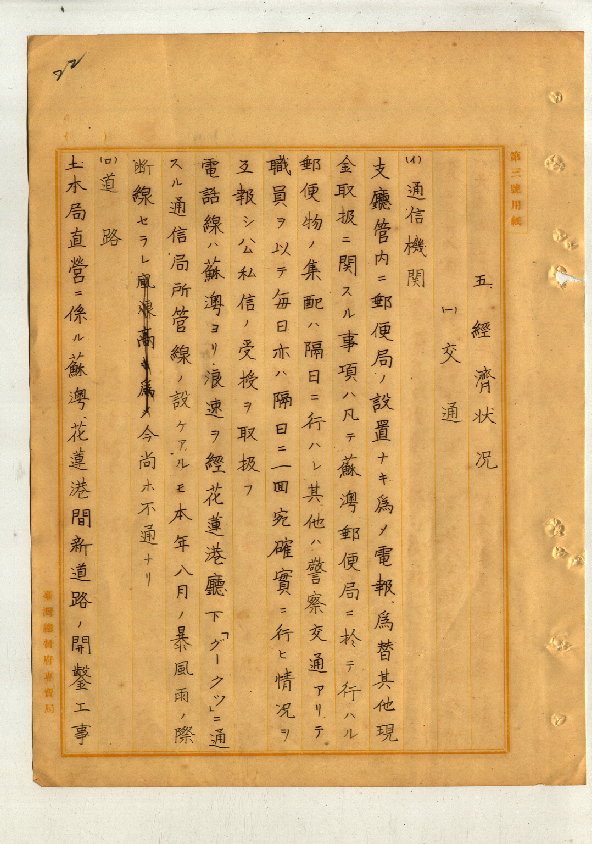 22
第三號用紙
五 經濟狀況
(一) 交通
(イ) 通信機関
支廳管内ニ郵便局ノ設置ナキ為メ電報、為替其他現
金取扱ニ関スル事項ハ凡テ蘇澳郵便局ニ於テ行ハル
郵便物ノ集配ハ隔日ニ行ハレ其他ハ警察交通アリテ
職員ヲ以テ毎日亦ハ隔日ニ一回宛確實ニ行ヒ情況ヲ
互報シ公私信ノ受授ヲ取扱フ
電話線ハ蘇澳ヨリ浪速ヲ經花蓮港廳下「グークツ」ニ通
スル通信局所管線ノ設ケアルモ本年八月ノ暴風雨ノ際
断線セラレ風浪高キ為メ今尚ホ不通ナリ
(ロ) 道路
土木局直營ニ係ル蘇澳、花蓮港間新道路ノ開鑿工事
臺灣總督府專賣局